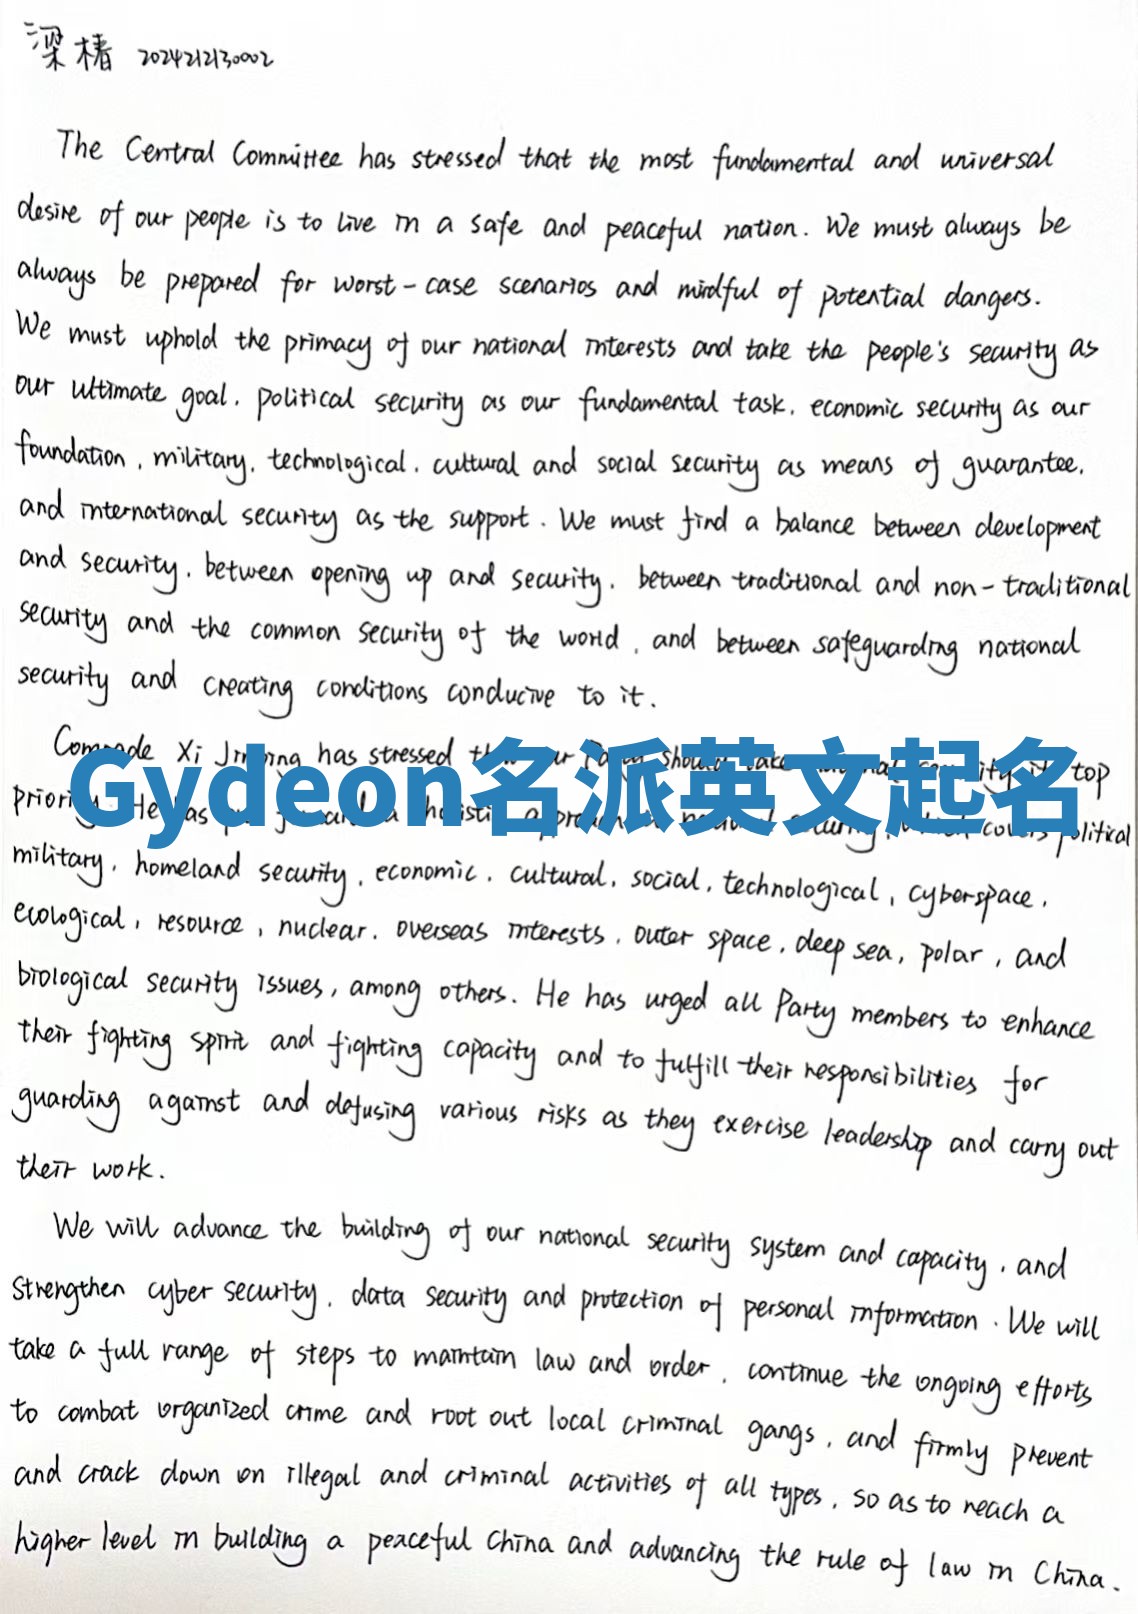 梁椿 2024212130002
The Central Committee has stressed that the most fundamental and universal
desire of our people is to live in a safe and peaceful nation. We must always be
always be prepared for worst-case scenarios and mindful of potential dangers.
We must uphold the primacy of our national interests and take the people's security as
our ultimate goal, political security as our fundamental task, economic security as our
foundation, military, technological, cultural and social security as means of guarantee,
and international security as the support. We must find a balance between development
and security, between opening up and security, between traditional and non-traditional
security and the common security of the world, and between safeguarding national
security and creating conditions conducive to it.
Comrade Xi Jinping has stressed our Party should take security top
Gydeon名派英文起名
priority. He has covers political
military, homeland security, economic, cultural, social, technological, cyberspace,
ecological, resource, nuclear, overseas interests, outer space, deep sea, polar, and
biological security issues, among others. He has urged all Party members to enhance
their fighting spirit and fighting capacity and to fulfill their responsibilities for
guarding against and defusing various risks as they exercise leadership and carry out
their work.
We will advance the building of our national security system and capacity, and
strengthen cyber security, data security and protection of personal information. We will
take a full range of steps to maintain law and order, continue the ongoing efforts
to combat organized crime and root out local criminal gangs, and firmly prevent
and crack down on illegal and criminal activities of all types, so as to reach a
higher level in building a peaceful China and advancing the rule of law in China.